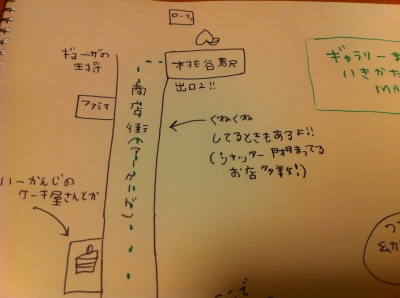 ローソン
ギョーザの
王将
桃谷駅
出口2!!
ファミマ
商店街(アーケード)
くねくね
してるときもあるよ!!
(シャッター閉まってる
お店多数!)
いーかんじの
ケーキ屋さんとか
ギャラリーま
いきかた